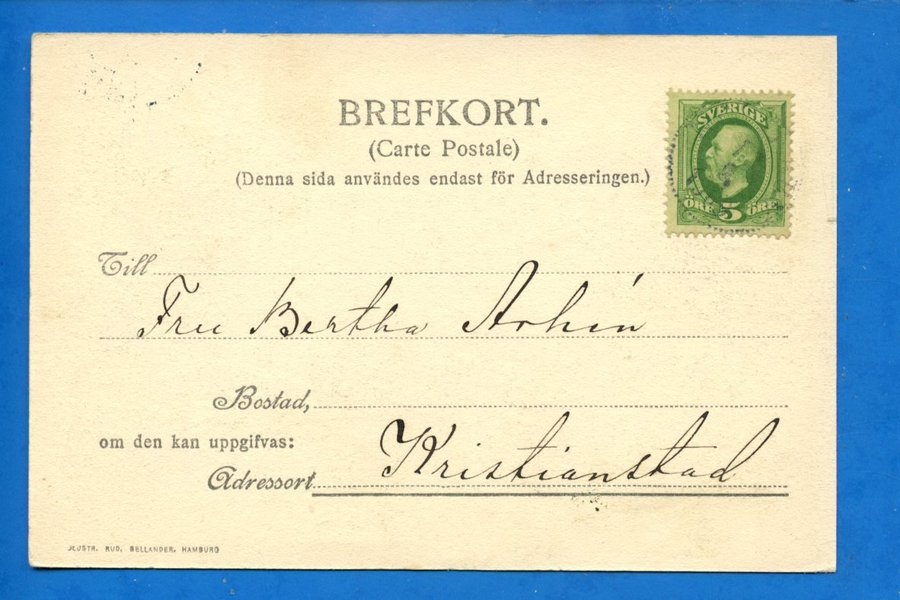 BREFKORT.
(Carte Postale)
(Denna sida användes endast för Adresseringen.)
SVERIGE
ÖRE 5 ÖRE
Till
Fru Bertha
Bostad,
om den kan uppgifvas:
Adressort Kristianstad
JLUSTR. RUD. BELLANDER, HAMBURG